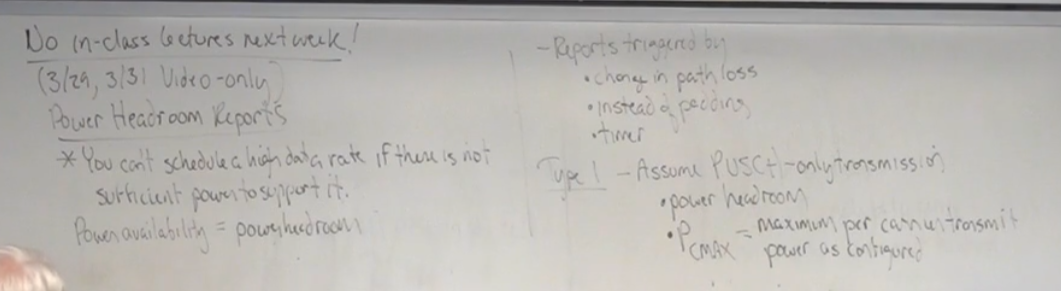 No in-class lectures next week!
(3/29, 3/31 Video-only)
Power Headroom Reports
* You can't schedule a high data rate if there is not
sufficient power to support it.
Power availability = power headroom
- Reports triggered by
• change in path loss
• instead of padding
• timer
Type 1 - Assume PUSCH-only transmission
• power headroom
• PCMAX = maximum per carrier transmit
power as configured